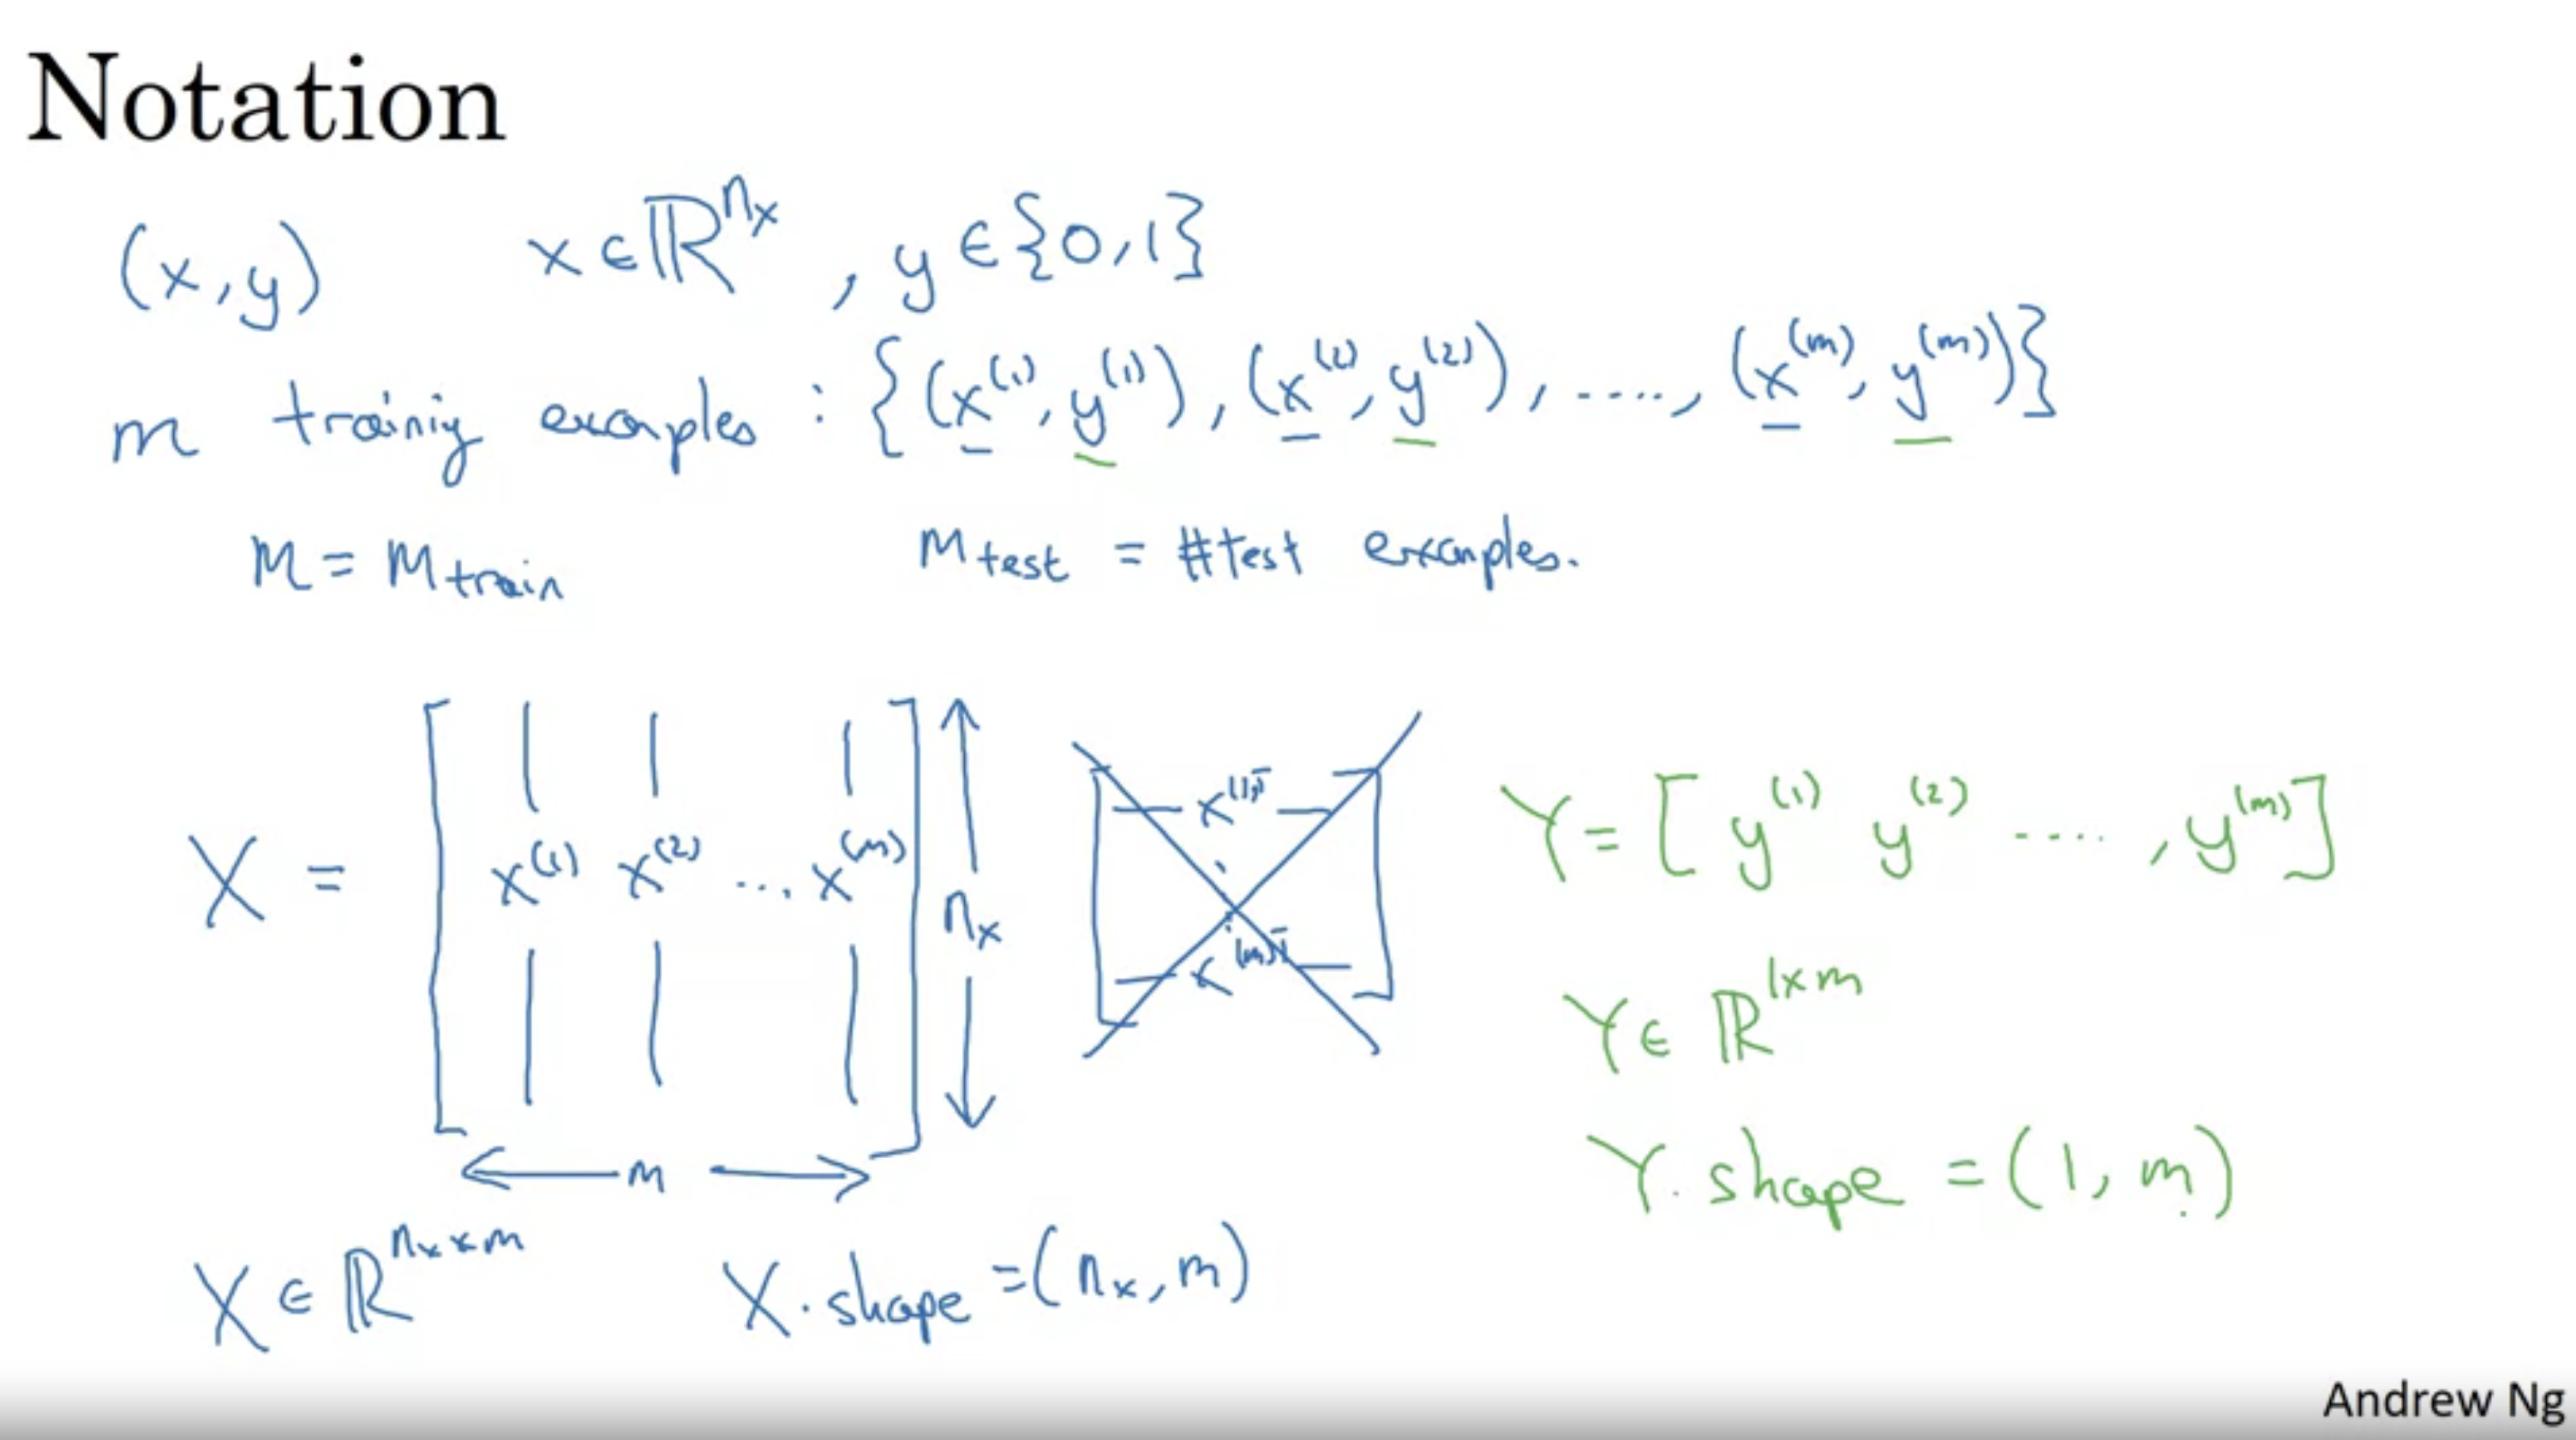 Notation
(x,y) x∈ℝ^{n_x}, y∈{0,1}
m training examples : {(x^{(1)}, y^{(1)}), (x^{(2)}, y^{(2)}), ....., (x^{(m)}, y^{(m)})}
M = M_{train} M_{test} = #test examples.
X = [x^{(1)} x^{(2)} ... x^{(m)}] n_x
x^{(1)T}
x^{(m)T}
m
X ∈ ℝ^{n_x×m} X.shape = (n_x, m)
Y = [y^{(1)} y^{(2)} ...., y^{(m)}]
Y∈ ℝ^{1×m}
Y.shape = (1, m)
Andrew Ng